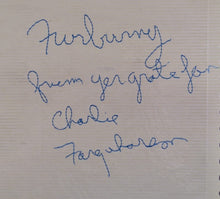 Furburny
frum yer grate fan
Charlie
Farquharson